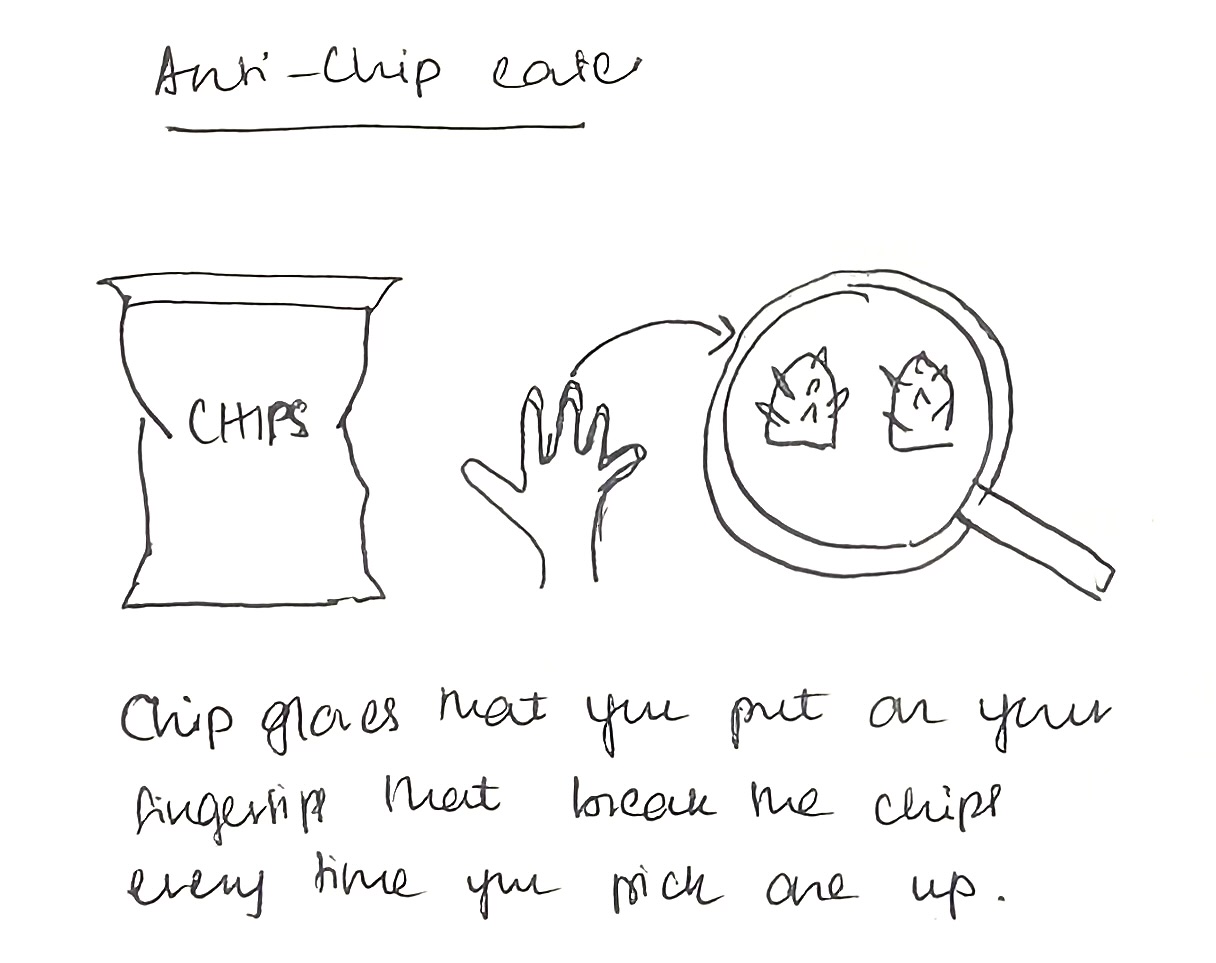 Anti-Chip eater
CHIPS
Chip gloves that you put on your
fingertips that break the chips
every time you pick one up.